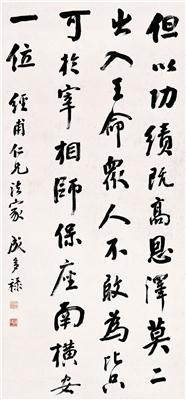 但以功績既高恩澤莫二
出入王命衆人不敢為比不
可於宰相師保座南橫安
一位
經甫仁兄法家 成多祿